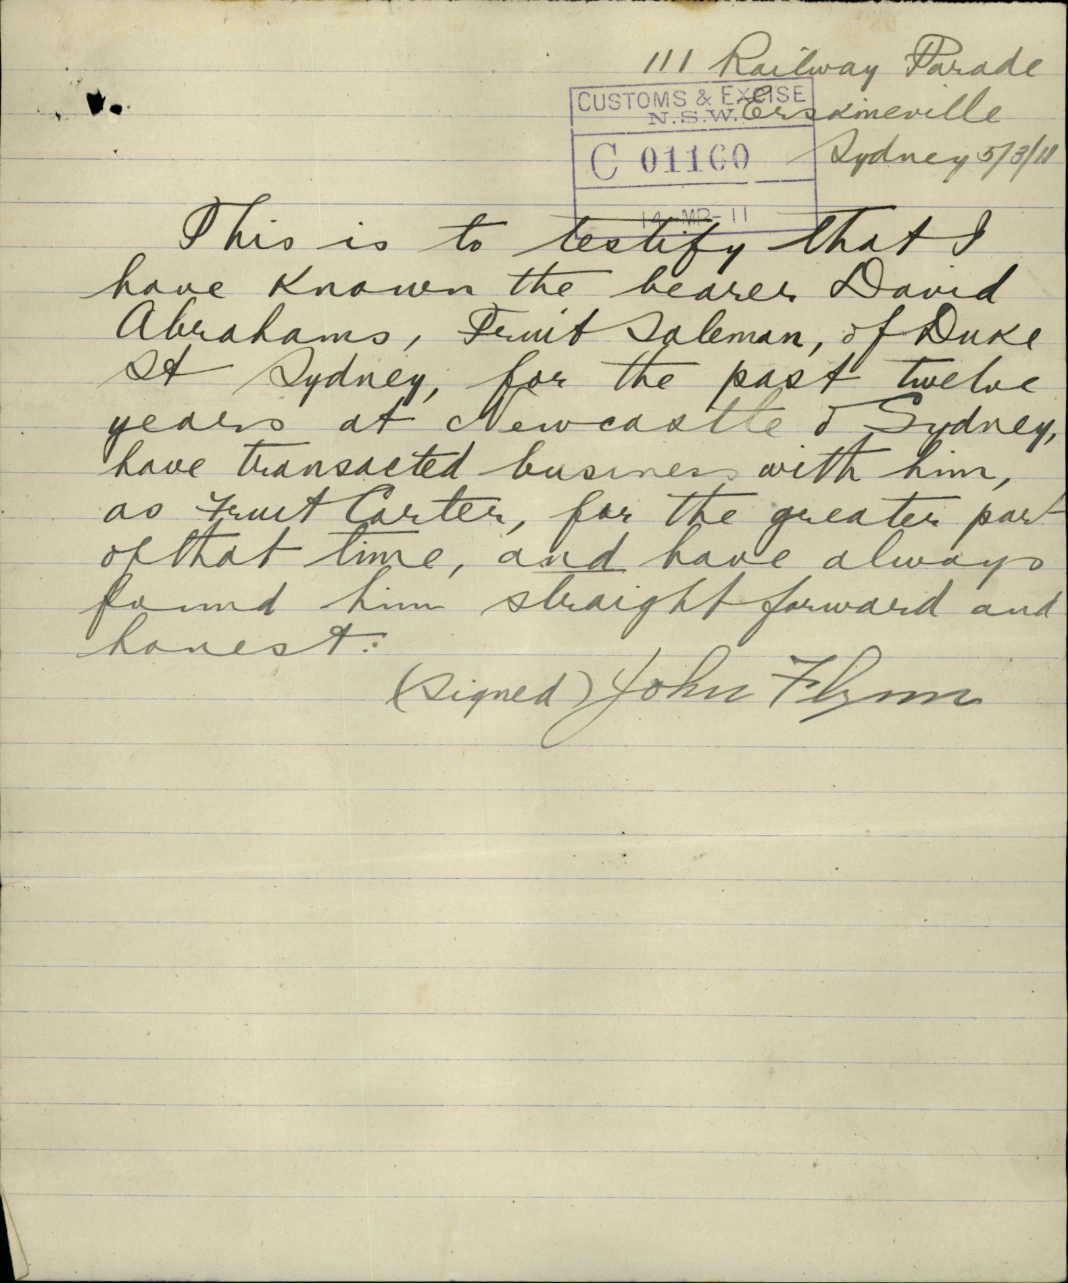 111 Railway Parade
Erskineville
Sydney 5/3/11
CUSTOMS & EXCISE
N.S.W.
C 01160
14 MR-11
This is to testify that I
have known the bearer David
Abrahams, Fruit Saleman, of Duke
St Sydney, for the past twelve
years at Newcastle & Sydney,
have transacted business with him,
as Fruit Carter, for the greater part
of that time, and have always
found him straight forward and
honest.:
(Signed) John Flynn